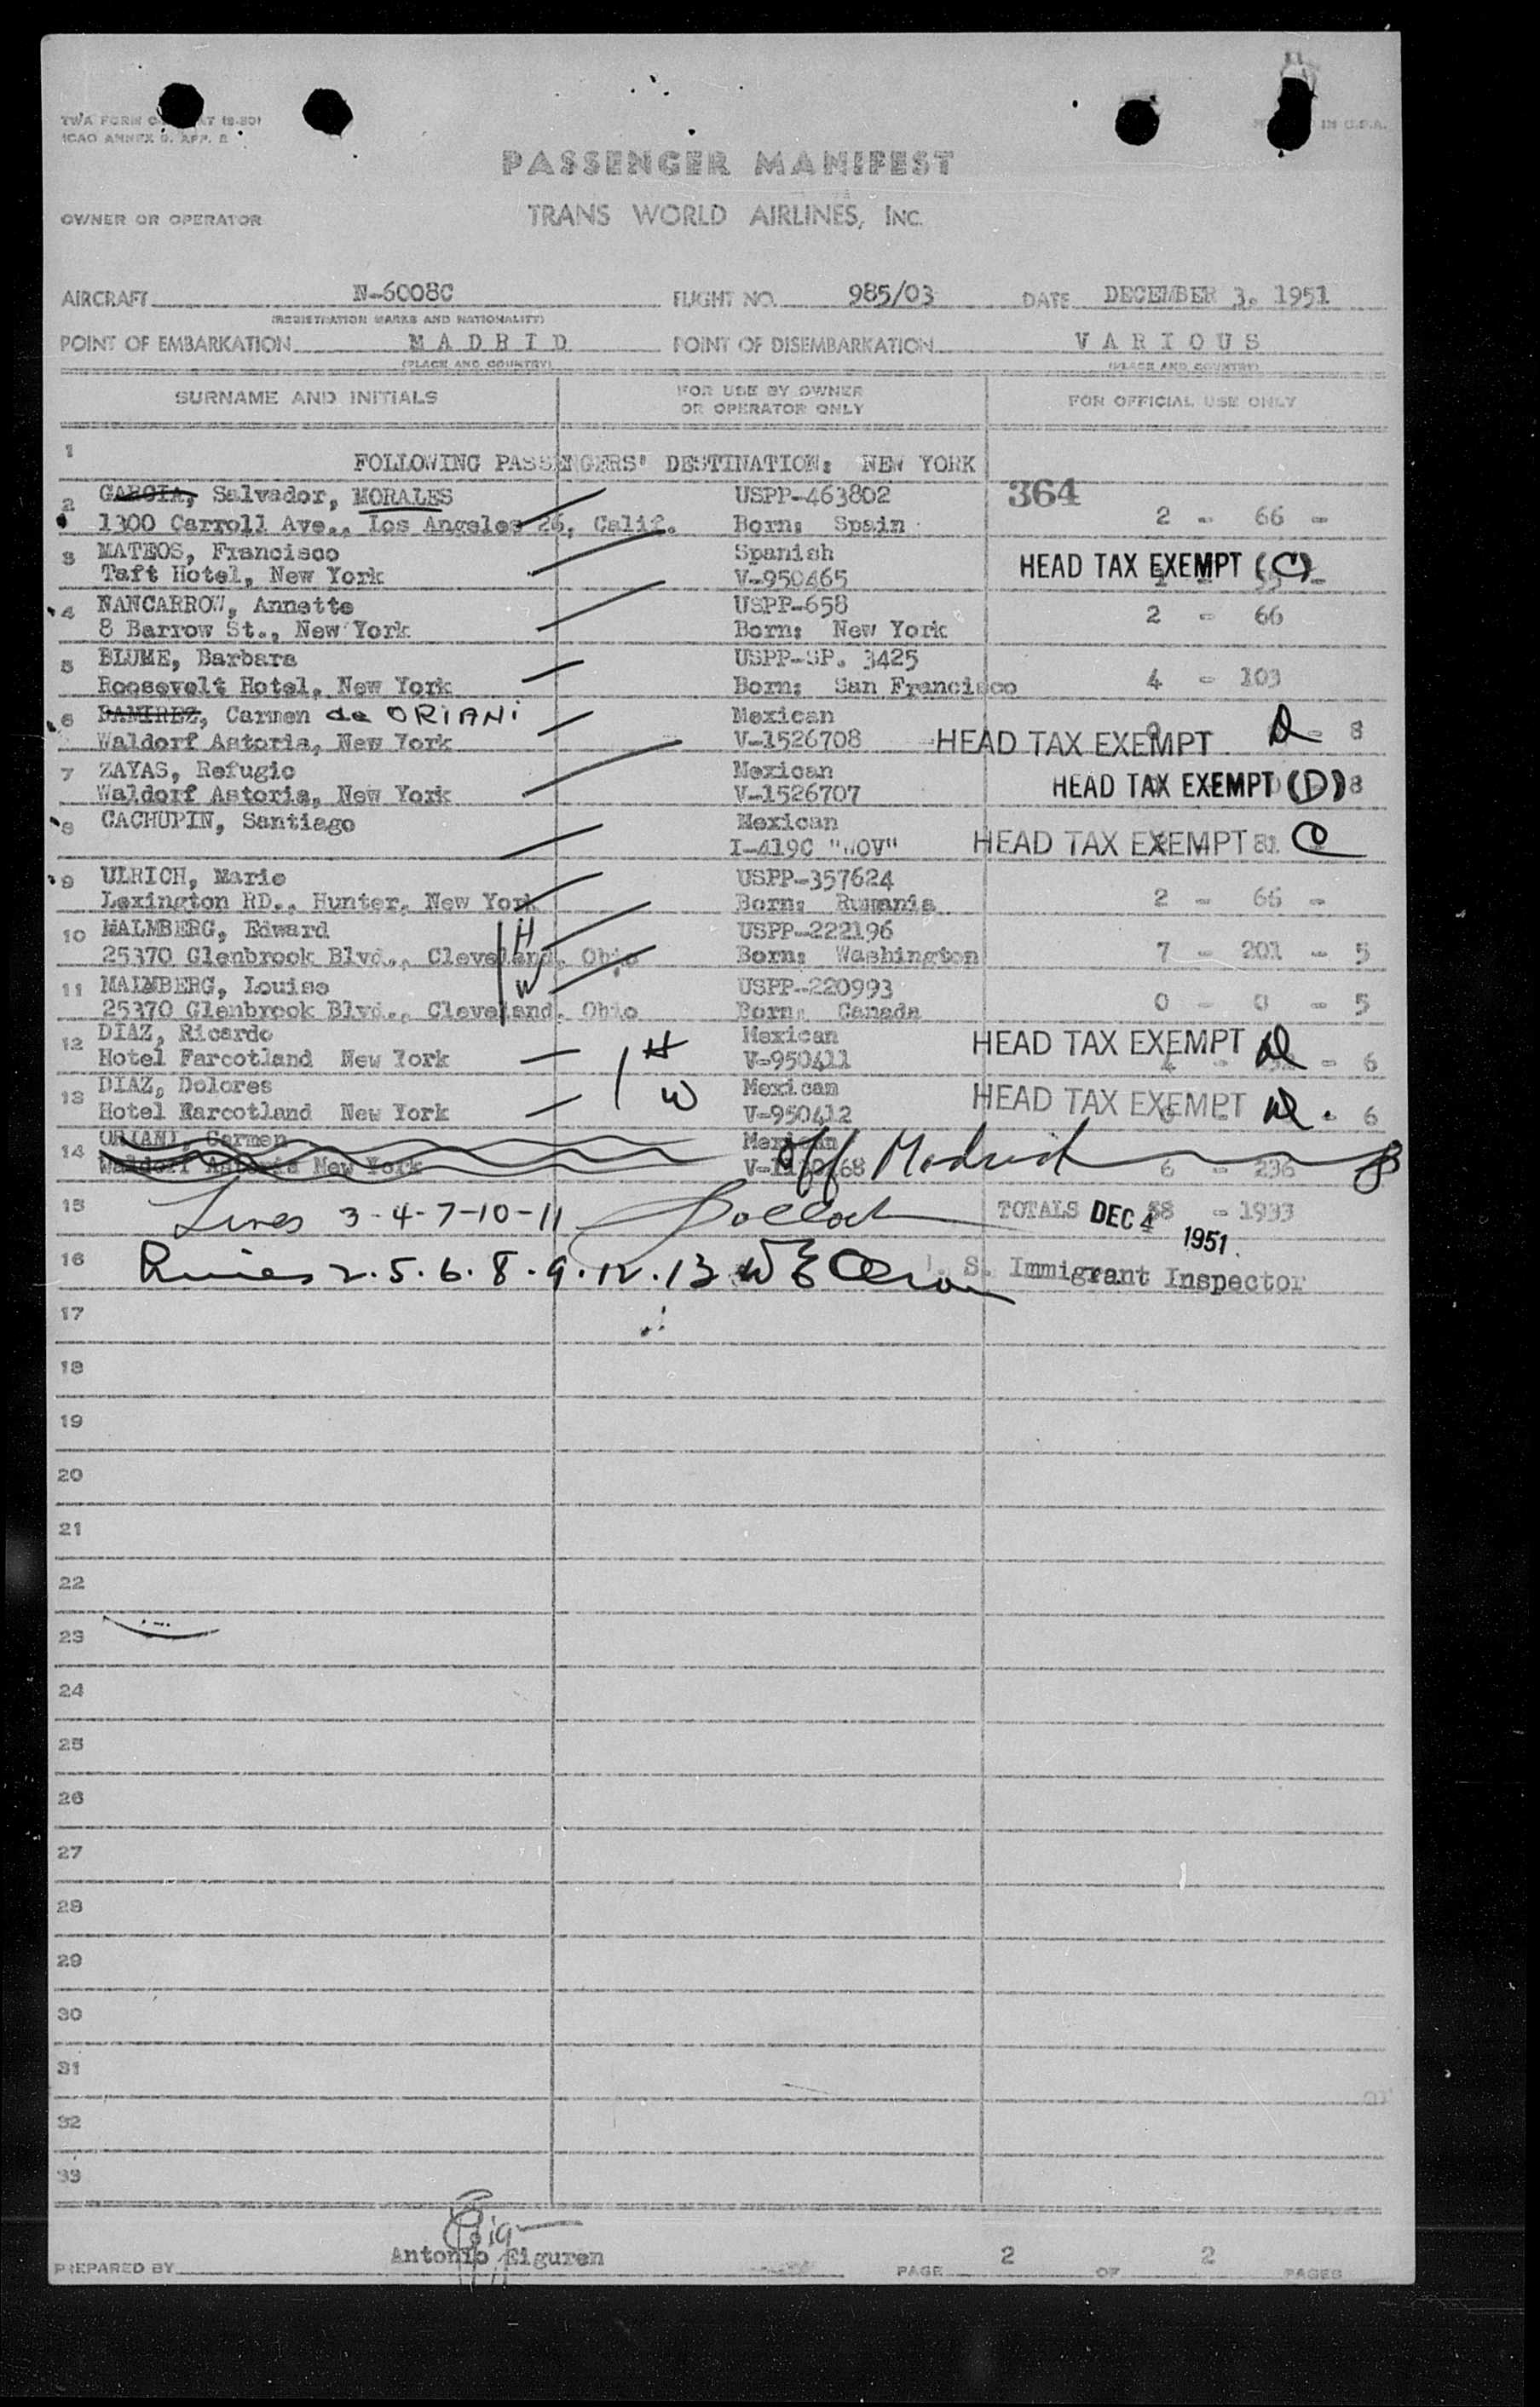 ICAO ANNEX 9, APP. 2
IN U.S.A.
PASSENGER MANIFEST
OWNER OR OPERATOR TRANS WORLD AIRLINES, INC.
AIRCRAFT N-6008C FLIGHT NO. 985/03 DATE DECEMBER 3, 1951
(REGISTRATION MARKS AND NATIONALITY)
POINT OF EMBARKATION MADRID POINT OF DISEMBARKATION VARIOUS
(PLACE AND COUNTRY) (PLACE AND COUNTRY)
SURNAME AND INITIALS FOR USE BY OWNER OR OPERATOR ONLY FOR OFFICIAL USE ONLY
1 FOLLOWING PASSENGERS' DESTINATION: NEW YORK
2 GARCIA, Salvador, MORALES USPP-463802 364
1300 Carroll Ave., Los Angeles 26, Calif. Born: Spain 2 - 66 -
3 MATEOS, Francisco Spanish HEAD TAX EXEMPT (C)
Taft Hotel, New York V-950465
4 NANCARROW, Annette USPP-658 2 - 66
8 Barrow St., New York Born: New York
5 BLUME, Barbara USPP-SP. 3425
Roosevelt Hotel, New York Born: San Francisco 4 - 103
6 RAMIREZ, Carmen de ORIANI Mexican
Waldorf Astoria, New York V-1526708 HEAD TAX EXEMPT D - 8
7 ZAYAS, Refugio Mexican HEAD TAX EXEMPT (D) 8
Waldorf Astoria, New York V-1526707
8 CACHUPIN, Santiago Mexican
I-419C "NOV" HEAD TAX EXEMPT 81 C
9 ULRICH, Marie USPP-357624
Lexington RD., Hunter, New York Born: Rumania 2 - 66 -
10 MALMBERG, Edward H USPP-222196
25370 Glenbrook Blvd., Cleveland, Ohio Born: Washington 7 - 201 - 5
11 MALMBERG, Louise W USPP-220993
25370 Glenbrook Blvd., Cleveland, Ohio Born: Canada 0 - 0 - 5
12 DIAZ, Ricardo H Mexican HEAD TAX EXEMPT D
Hotel Farcotland New York V-950411 4 - - 6
13 DIAZ, Dolores W Mexican HEAD TAX EXEMPT D.
Hotel Farcotland New York V-950412 0 - 6
14 ORIANI, Carmen Mexican off Madrid
Waldorf Astoria New York 6 - 236
15 Lines 3-4-7-10-11 TOTALS 38 - 1933
DEC 4 1951
16 Lines 2.5.6.8.9.12.13 S. Immigrant Inspector
17
18
19
20
21
22
23
24
25
26
27
28
29
30
31
32
33
PREPARED BY Antonio Eiguren PAGE 2 OF 2 PAGES